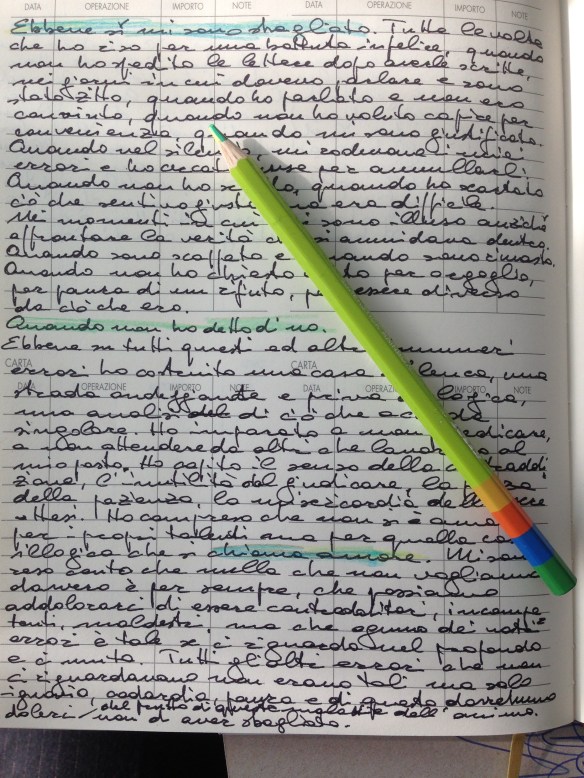 DATA OPERAZIONE IMPORTO NOTE DATA OPERAZIONE IMPORTO NOTE
Ebbene sì mi sono sbagliato. Tutte le volte
che ho riso per una battuta infelice, quando
non ho spedito le lettere dopo averle scritte,
nei giorni in cui dovevo parlare e sono
stato zitto, quando ho parlato e non ero
convinto, quando non ho voluto capire per
convenienza, quando mi sono giustificato.
Quando nel silenzio, mi rodevano i miei
errori e ho cercato scuse per annullarli
Quando non ho scelto, quando ho scartato
ciò che sentivo giusto ma era difficile.
Nei momenti in cui mi sono illuso anziché
affrontare la verità che si annidava dentro.
Quando sono scappato e quando sono rimasto.
Quando non ho chiesto aiuto per orgoglio,
per paura di un rifiuto, per essere diverso
da ciò che ero.
Quando non ho detto di no.
Ebbene su tutti questi ed altri innumeri
CARTA CARTA
errori ho costruito una casa sbilenca, una
DATA OPERAZIONE IMPORTO NOTE DATA OPERAZI NOTE
strada e priva di logica,
una analisi del di ciò che accade
singolare. Ho imparato a non giudicare,
a non attendere da altri che lavorino al
mio posto. Ho capito il senso della contraddi
zione, l'inutilità del giudicare, la forza
della pazienza, la misericordia dell'essere
stessi. Ho compreso che non si è amati
per i propri talenti ma per quella cosa
illogica che si chiama amore. Mi sono
reso conto che nulla che non vogliamo
davvero è per sempre, che possiamo
addolorarci di essere contraddittori, incompe
tenti, maldestri, ma che ognuno dei nostri
errori è tale se ci riguarda nel profondo
e ci muta. Tutti gli altri errori che non
ci riguardavano non erano tali ma solo
ignavia, codardia, paura e di questo dovremmo
dolerci, del furto di queste anglerie dell'animo.
non di aver sbagliato.